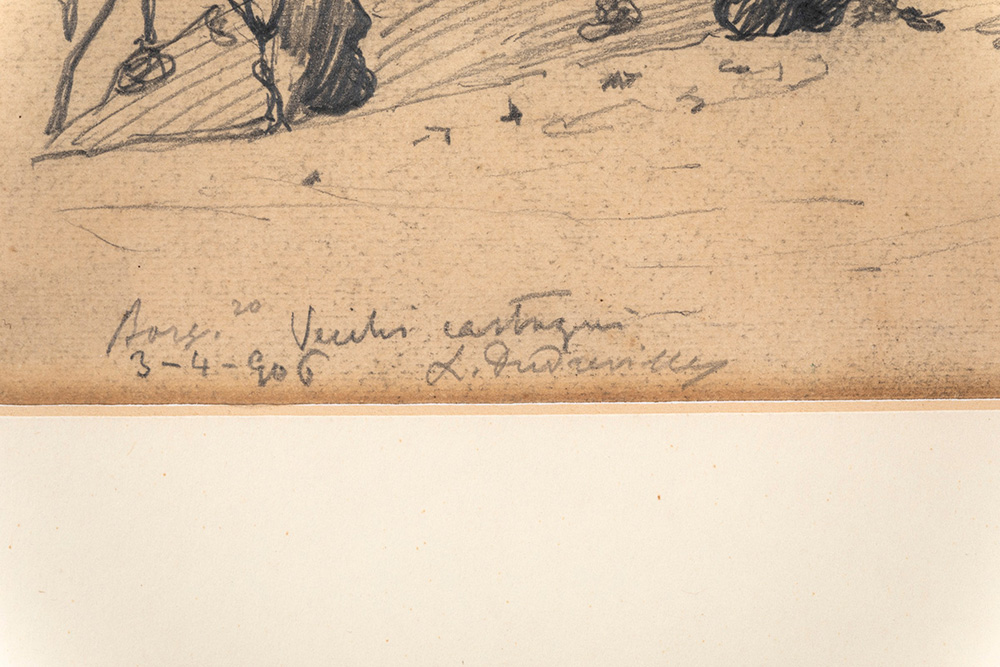 Borg.zo Vecchi castagni
3-4-906 L. Dudreville